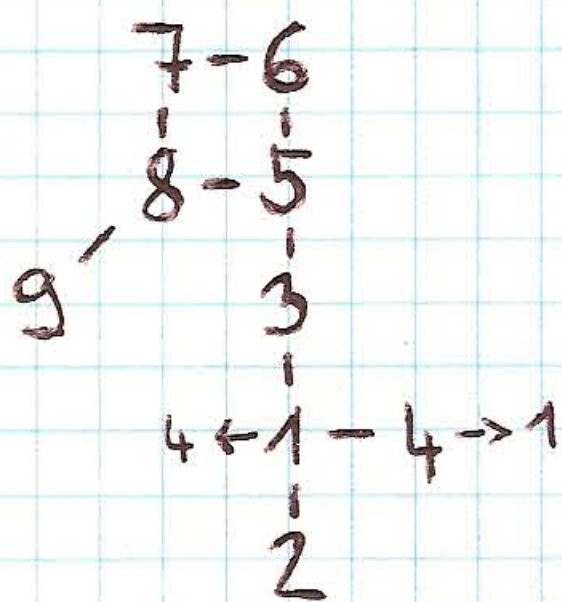 7 - 6
8 - 5
9
3
4 ← 1 - 4 → 1
2